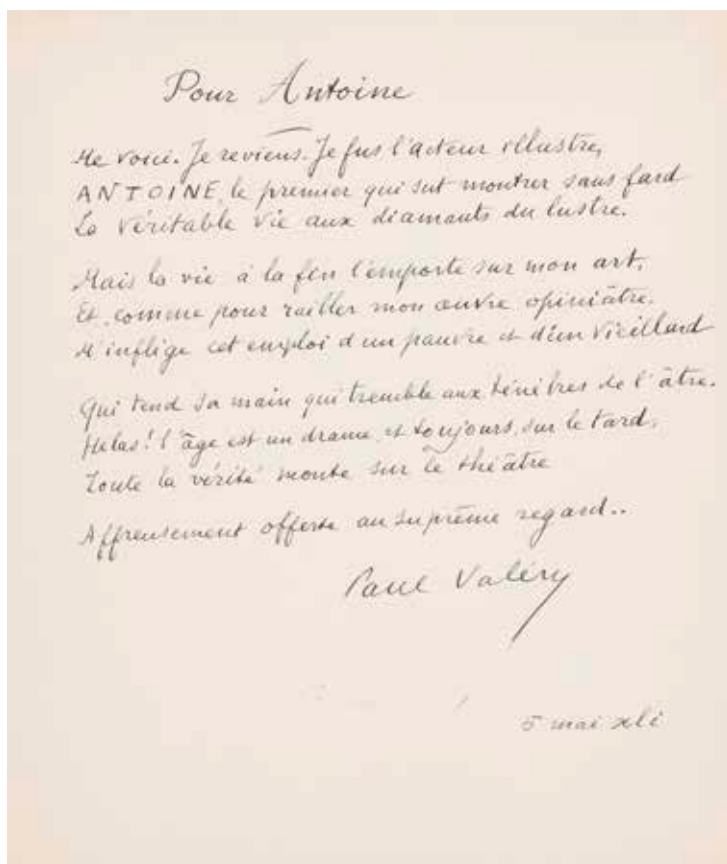 Pour Antoine
Me voici. Je reviens. Je fus l'acteur illustre,
ANTOINE, le premier qui sut montrer sans fard
La véritable vie aux diamants du lustre.
Mais la vie à la fin l'emporte sur mon art,
Et, comme pour railler mon œuvre opiniâtre,
M'inflige cet emploi d'un pauvre et d'un vieillard
Qui tend sa main qui tremble aux ténèbres de l'âtre.
Hélas! l'âge est un drame, et toujours, sur le tard,
Toute la vérité monte sur le théâtre
Affreusement offerte au suprême regard..
Paul Valéry
5 mai xli